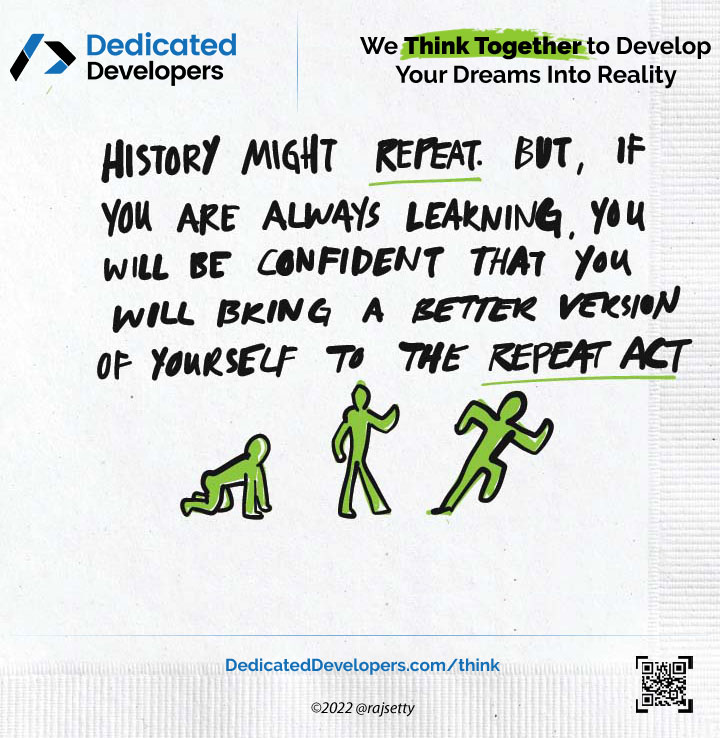 Dedicated
Developers
We Think Together to Develop
Your Dreams Into Reality
HISTORY MIGHT REPEAT. BUT, IF
YOU ARE ALWAYS LEARNING, YOU
WILL BE CONFIDENT THAT YOU
WILL BRING A BETTER VERSION
OF YOURSELF TO THE REPEAT ACT
DedicatedDevelopers.com/think
©2022 @rajsetty